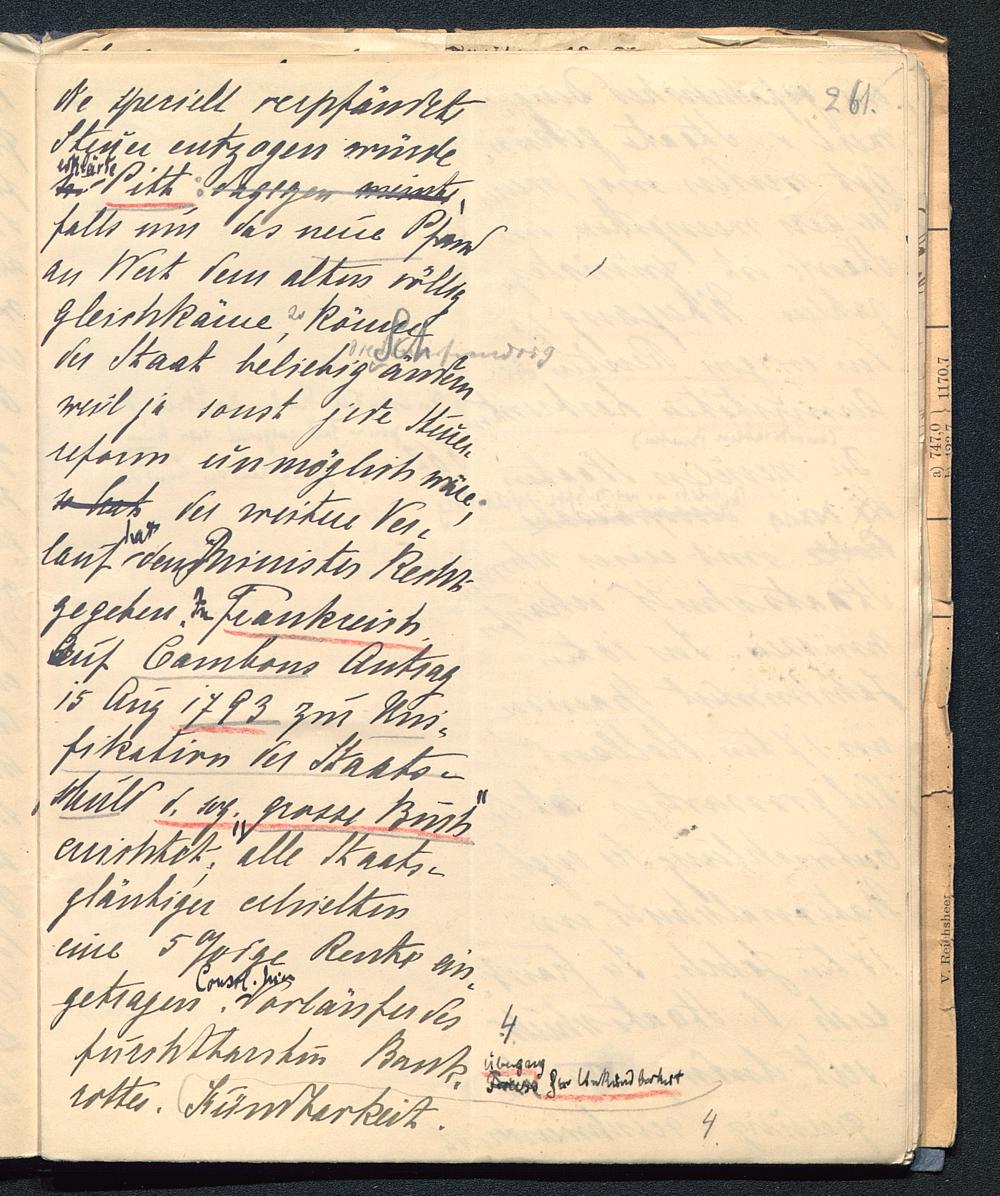 261.
die speziell verpfändete
Steuer entzogen würde
erklärte
Pitt: dagegen meinte,
falls nur das neue Pfand
an Wert dem alten völlig
gleichkäme, so könne
der Staat beliebig ändern
weil ja sonst jede Steuer-
reform unmöglich wäre,
so hat der weitere Ver-
hat
lauf dem Minister Recht
gegeben. In Frankreich
auf Cambons Antrag
15 Aug 1793 zur Uni-
fikation der Staats-
schuld d. sog. "grosse Buch"
errichtet, alle Staats-
gläubiger erhielten
eine 5%ige Rente ein-
Consol. hier
getragen. Vorläufer des
furchtbarsten Bank-
rottes. Kündbarkeit.
4.
Übergang
zur Unkündbarkeit
4.
a) 747,0 } 1170,7
V. Reichsheer